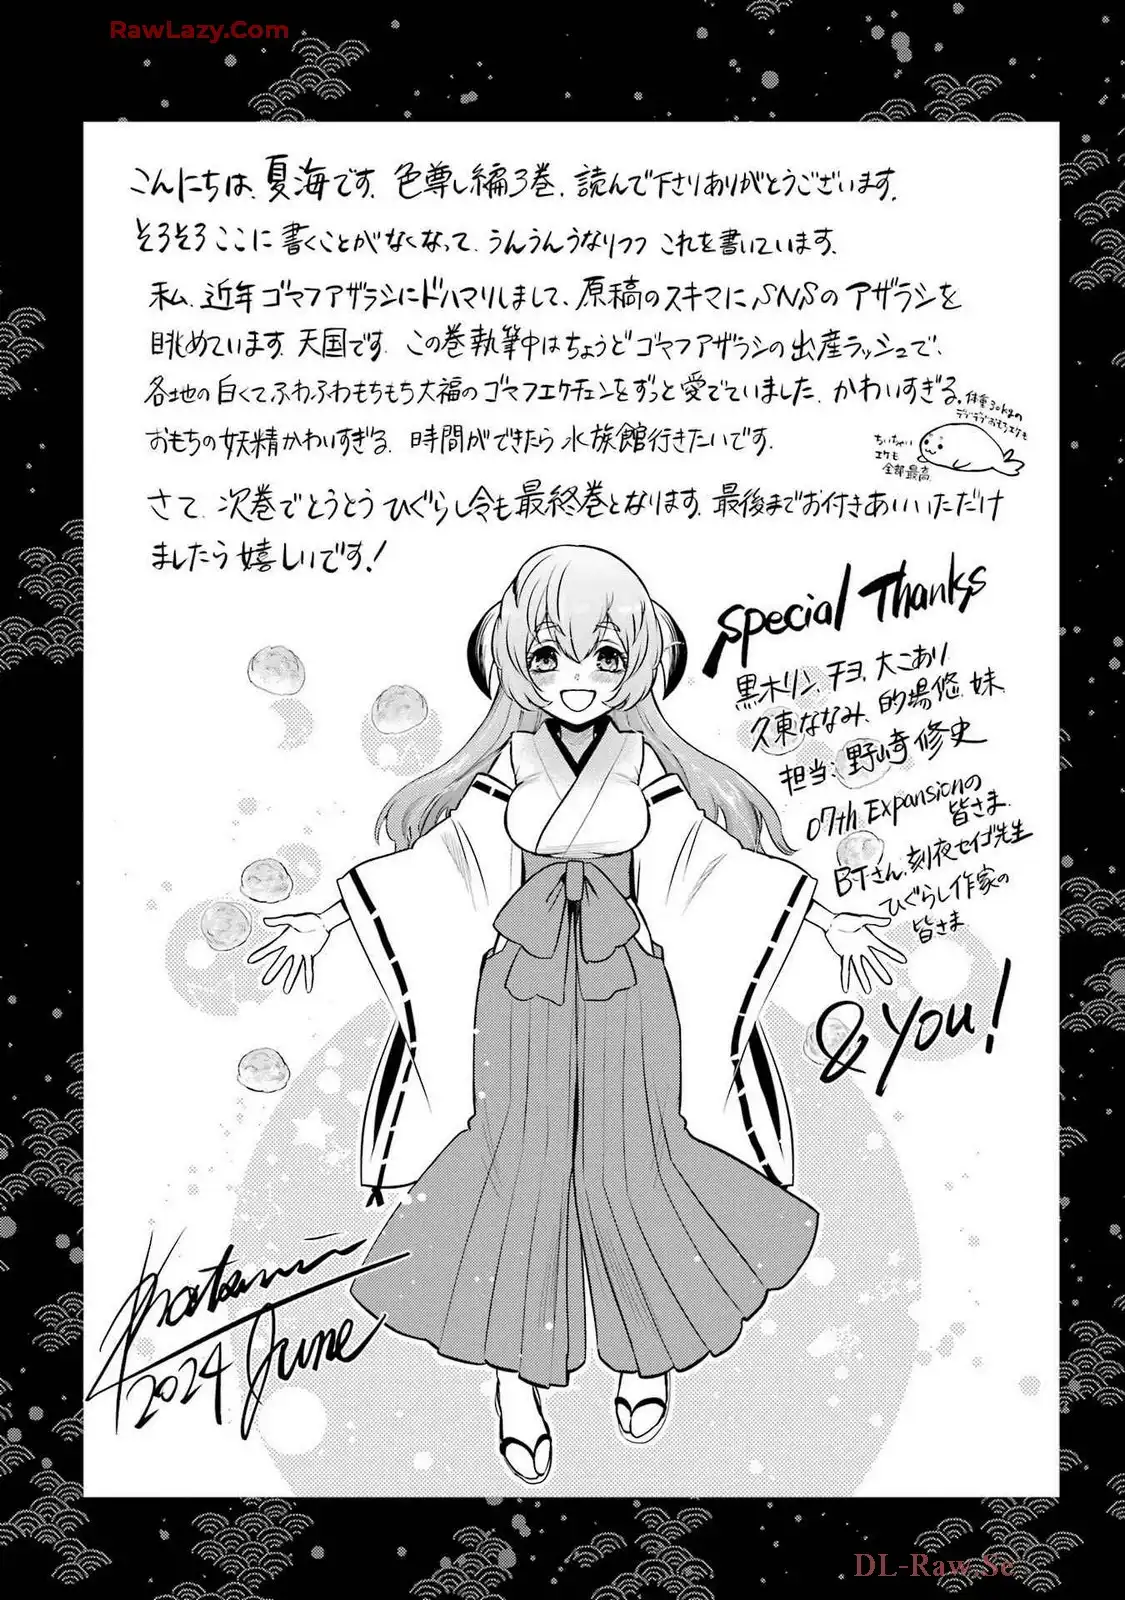 RawLazy.Com
こんにちは、夏海です。色尊し編3巻、読んで下さりありがとうございます。
そろそろここに書くことがなくなって、うんうんうなりつつこれを書いています。
私、近年ゴマフアザラシにドハマりしまして、原稿のスキマにSNSのアザラシを
眺めています。天国です。この巻執筆中はちょうどゴマフアザラシの出産ラッシュで、
各地の白くてふわふわもちもち大福のゴマフエケチェンをずっと愛でていました。かわいすぎる。
おもちの妖精かわいすぎる。時間ができたら水族館行きたいです。
体重30kgの
デブデブおもちエケも
ちいちゃい
エケも
全部最高
さて、次巻でとうとうひぐらし令も最終巻となります。最後までお付きあいいただけ
ましたら嬉しいです!
Special Thanks
黒木リン、チヨ、大こあり
久東ななみ、的場悠、妹
担当:野崎修史
07th Expansionの
皆さま
BTさん、刻夜セイゴ先生
ひぐらし作家の
皆さま
& You!
2024 June
DL-Raw.Se